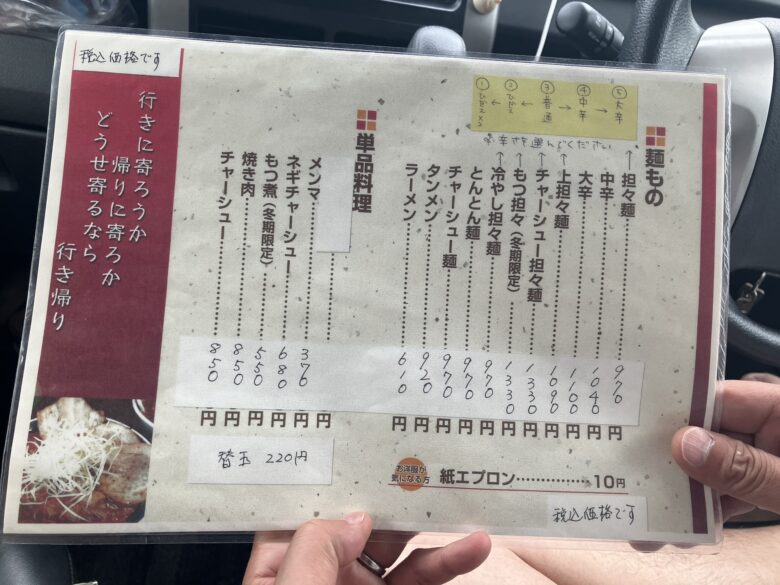 税込価格です
麺もの
⑤大辛
④中辛
③普通
②ひかえ
①ひかえ×2
※辛さを選んでください
担々麺 970円
中辛
大辛 1040円
上担々麺 1010円
チャーシュー担々麺 1090円
もつ担々(冬期限定) 1330円
冷やし担々麺 970円
とんとん麺
チャーシュー麺 970円
タンメン 920円
ラーメン 610円
単品料理
メンマ 370円
ネギチャーシュー 680円
もつ煮(冬期限定) 550円
焼き肉 850円
チャーシュー 850円
替玉 220円
お洋服が
気になる方
紙エプロン……………10円
税込価格です
行きに寄ろうか
帰りに寄ろか
どうせ寄るなら
行き帰り